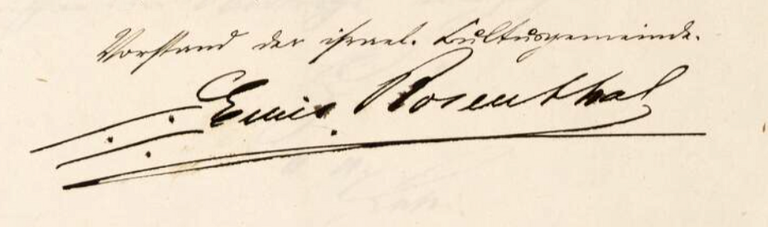 Vorstand der israel. Kultusgemeinde.
Rosenthal